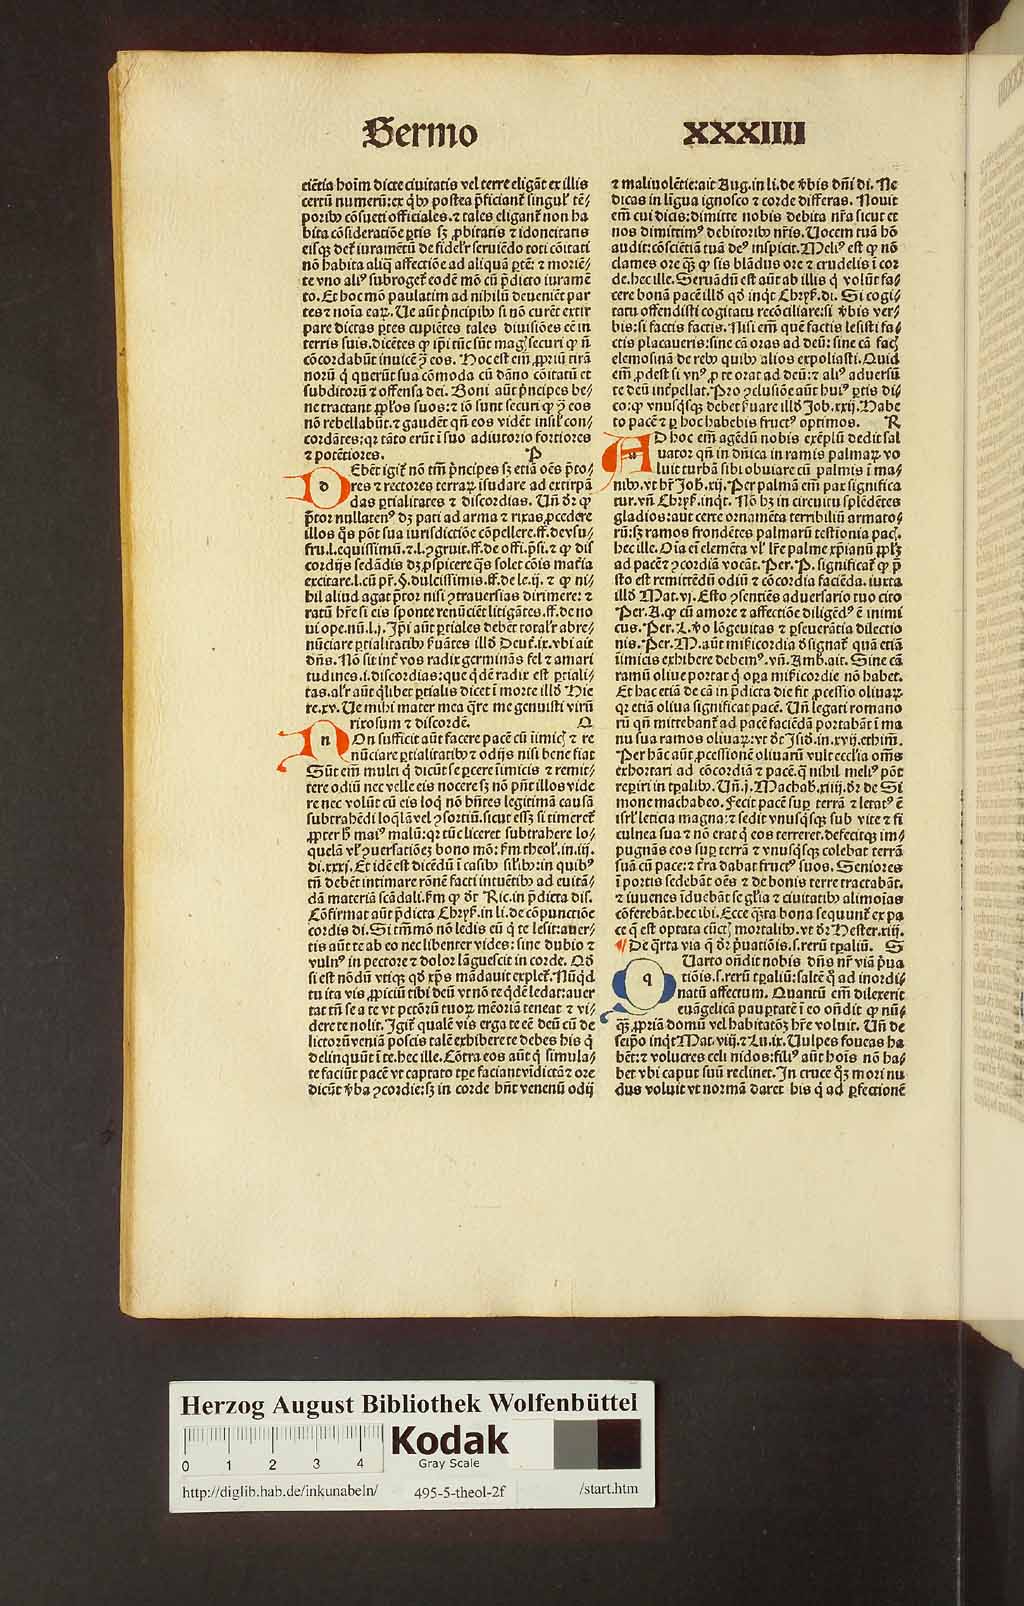 Sermo XXXIIII
ciētia hoīm dicte ciuitatis vel terre eligāt ex illis
certū numerū: ex q̇bꝰ postea p̄ficiant̄ singul' tē⸗
poribꝰ cōsueti officiales. ⁊ tales eligant̄ non ha
bita cōsideratiōe ꝑtis sꝫ ꝓbitatis ⁊ idoneitatis
eisqꝫ det̄ iuramētū de fidelr̄ seruiēdo toti cōitati
nō habita aliq̄ affectiōe ad aliquā ꝑtē: ⁊ moriē⸗
te vno aliꝰ subroget̄ eodē mō cū p̄dicto iuramē
to. Et hoc mō paulatim ad nihilū deueniēt par
tes ⁊ noīa eaꝝ. Ue aūt p̄ncipibꝰ si nō curēt extir
pare dictas ꝑtes cupiētes tales diuisiōes eē in
terris suis. dicētes ꝙ ip̄i tūc sūt magꝭ securi ꝙ nō
cōcordabūt inuicē ꝯ̄ eos. Hoc est em̄ ꝓpriū tirā
norū q̇ querūt sua cōmoda cū dāno cōitatū et
subditorū ⁊ offensa dei. Boni aūt p̄ncipes be⸗
ne tractant ꝓpl'os suos: ⁊ iō sunt securi ꝙ ꝯ̄ eos
nō rebellabūt. ⁊ gaudēt qn̄ eos vidēt insil' con⸗
cordātes: qꝛ tāto erūt ī suo adiutorio fortiores
⁊ potētiores. P
Ebēt igit̄ nō tm̄ p̄ncipes sꝫ etiā oēs p̄to⸗
res ⁊ rectores terraꝝ īsudare ad extirpā
das ꝑtialitates ⁊ discordias. Un̄ dr̄ ꝙ
p̄tor nullatenꝰ dꝫ pati ad arma ⁊ rixas ꝓcedere
illos q̄s pōt sua iurisdictiōe cōpellere. ff. de vsu⸗
fru. l. equissimū. ⁊. l. ꝯgruit. ff. de offi. p̄si. ⁊ ꝙ dis
cordijs sedādis dꝫ ꝓspicere q̄s solet cōis mat̄ia
excitare. l. cū pr̄. §. dulcissimis. ff. de le. ij. ⁊ ꝙ ni⸗
bil aliud agat p̄tor nisi ꝯtrauersias dirimere: ⁊
ratū hr̄e si eis sponte renūciēt litigātes. ff. de no
ui ope. nū. l. j. Ip̄i aūt ꝑtiales debēt totalr̄ abre⸗
nūciare ꝑtialitatibꝰ s̄uātes illō Deut̄. ix. vbi ait
dn̄s. Nō sit int̄ vos radix germināns fel ⁊ amari
tudines. i. discordias: que q̇dē radix est ꝑtiali⸗
tas. al'r aūt q̇libet ꝑtialis dicet ī morte illō Hie
re. xv. Ue mihi mater mea q̄re me genuisti virū
rixosum ⁊ discordē. Q
On sufficit aūt facere pacē cū īimicꝭ ⁊ re
nūciare ꝑtialitatibꝰ ⁊ odijs nisi bene fiat
Sūt em̄ mult̄ q̇ dicūt se ꝑcere īimicis ⁊ remit⸗
tere odiū nec velle eis nocere sꝫ nō pn̄t illos vide
re nec volūt cū eis loq̇ nō hn̄tes legitimā causā
subtrahēdi loq̄lā vel ꝯsortiū. sicut essꝫ si timeret̄
ꝓpter h̄ maiꝰ malū: qꝛ tūc liceret subtrahere lo⸗
quelā vl' ꝯuersatiōeꝫ bono mō: s̄m theol'. in. iij.
di. xxxj. Et idē est dicēdū ī casibꝰ sil'ibꝰ: in quibꝰ
tn̄ debēt intimare rōnē facti intuētibꝰ ad euitā⸗
dā materiā scādali. s̄m ꝙ dr̄ Ric. in p̄dicta dis.
Cōfirmat aūt p̄dicta Chrys. in li. de cōpunctiōe
cordis di. Si tm̄mō nō ledis eū q̇ te lesit: auer⸗
tis aūt te ab eo nec libenter vides: sine dubio ⁊
vulnꝰ in pectore ⁊ dolor lāguescit in corde. Qd̄
si est nōdū vtiqꝫ qd̄ xp̄s mādauit explet̄. Nūq̇d
tu ita vis ꝓpiciū tibi deū vt nō te q̇dē ledat: auer
tat tn̄ se a te vt pctōrū tuoꝝ mēoriā teneat ⁊ vi⸗
dere te nolit. Igit̄ qualē vis erga te eē deū cū de
lictorū veniā poscis talē exhibere te debes his q̇
delinquūt ī te. hec ille. Cōtra eos aūt q̇ simula⸗
te faciūt pacē vt captato tꝑe faciant vīdictā ⁊ ore
dicūt v̄ba ꝯcordie: sꝫ in corde hn̄t venenū odij
⁊ maliuolētie: ait Aug. in li. de v̄bis dn̄i di. Ne
dicas in ligua ignosco ⁊ corde differas. Nouit
em̄ cui dicas: dimitte nobis debita nr̄a sicut et
nos dimittimꝰ debitoribꝰ nr̄is. Uocem tuā hō
audit: cōsciētiā tuā deꝰ inspicit. Meliꝰ est ꝙ nō
clames ore qꝫ ꝙ sis blādus ore ⁊ crudelis ī cor
de. hec ille. Seruādū est aūt ab illis q̇ volūt fa⸗
cere bonā pacē illō qd̄ inq̇t Chrys. di. Si cogi⸗
tatu offendisti cogitatu recōciliare: si v̄bis ver⸗
bis: si factis factis. Nisi em̄ quē factis lesisti fa⸗
ctis placaueris: sine cā oras ad deū: sine cā facꝭ
elemosinā de rebꝰ quibꝰ alios expoliasti. Quid
em̄ ꝓdest si vnꝰ ꝓ te orat ad deū: ⁊ aliꝰ aduersū
te deū int̄pellat. Pro ꝯclusiōe aūt huiꝰ ꝑtis di⸗
co: ꝙ vnusq̇sqꝫ debet s̄uare illō Job. xxij. Habe
to pacē ⁊ ꝑ hoc habebis fructꝰ optimos. R
D hoc em̄ agēdū nobis exēplū dedit sal
uator qn̄ in dn̄ica in ramis palmaꝝ vo
luit turbā sibi obuiare cū palmis ī ma⸗
nibꝰ. vt hr̄ Joh. xij. Per palmā em̄ pax significa
tur. vn̄ Chrys. inqt. Nō hꝫ in circuitu splēdētes
gladios: aut certe ornamēta terribiliū armato⸗
rū: sꝫ ramos frondētes palmarū testīonia pacꝭ.
hec ille. Oīa eī elemēta vl' lr̄e palme xp̄ianū ꝓplꝫ
ad pacē ⁊ ꝯcordiā vocāt. Per. P. significat̄ ꝙ p̄
sto est remittēdū odiū ⁊ cōcordia faciēda. iuxta
illō Mat. vj. Esto ꝯsentiēs aduersario tuo cito
Per. A. ꝙ cū amore ⁊ affectiōe diligēdꝰ ē inimi
cus. Per. L. v̄o lōgeuitas ⁊ ꝑseuerātia dilectio
nis. Per. M. aūt mis̄icordia dsignat̄ quā etiā
īimicis exhibere debemꝰ. vn̄. Amb. ait. Sine cā
ramū oliue portat q̇ oꝑa mis̄icordie nō habet.
Et hac etiā de cā in p̄dicta die fit ꝓcessio oliuaꝝ.
qꝛ etiā oliua significat pacē. Un̄ legati romano
rū qn̄ mittebant̄ ad pacē faciēdā portabāt ī ma
nu sua ramos oliuaꝝ: vt dr̄ Isid. in. xvij. ethim̄.
Per hāc aūt ꝓcessionē oliuarū vult eccl'ia om̄s
exhortari ad cōcordiā ⁊ pacē. q̄ nihil meliꝰ pōt
reꝑiri in tꝑalibꝰ. Un̄. j. Machab. xiiij. dr̄ de Si
mone machabeo. Fecit pacē suꝑ terrā ⁊ letatꝰ ē
isrl' leticia magna: ⁊ sedit vnusq̇sqꝫ sub vite ⁊ fi
culnea sua ⁊ nō erat q̇ eos terreret. defecitqꝫ im⸗
pugnās eos suꝑ terrā ⁊ vnusq̇sqꝫ colebat terrā
suā cū pace: ⁊ t̄ra dabat fructꝰ suos. Seniores
ī portis sedebāt oēs ⁊ de bonis terre tractabāt.
⁊ iuuenes īduebāt se gl'ia ⁊ ciuitatibꝰ alimoīas
cōferebāt. hec ibi. Ecce q̄ta bona sequunt̄ ex pa
ce q̄ est optata cūctꝭ mortalibꝰ. vt dr̄ Hester. xiij.
¶ De q̄rta via q̄ dr̄ p̄uatiōis. s. rerū tꝑaliū. S
Uarto ōn̄dit nobis dn̄s nr̄ viā p̄ua
tiōis. s. rerū tꝑaliū: saltē q̇ ad inordi⸗
natū affectum. Quantū em̄ dilexerit
euāgelicā pauꝑtatē ī eo ōn̄dit ꝙ nū⸗
qꝫ ꝓpriā domū vel habitatōꝫ hr̄e voluit. Un̄ de
seip̄o inq̇t Mat. viij. ⁊ Lu. ix. Uulpes foueas ha
bēt: ⁊ volucres celi nidos: filiꝰ aūt hoīs nō ha⸗
bet vbi caput suū reclinet. In cruce q̇ꝫ mori nu
dus voluit vt normā daret his q̇ ad ꝑfectionē
Herzog August Bibliothek Wolfenbüttel
0 1 2 3 4
Kodak
Gray Scale
http://diglib.hab.de/inkunabeln/ 495-5-theol-2f /start.htm